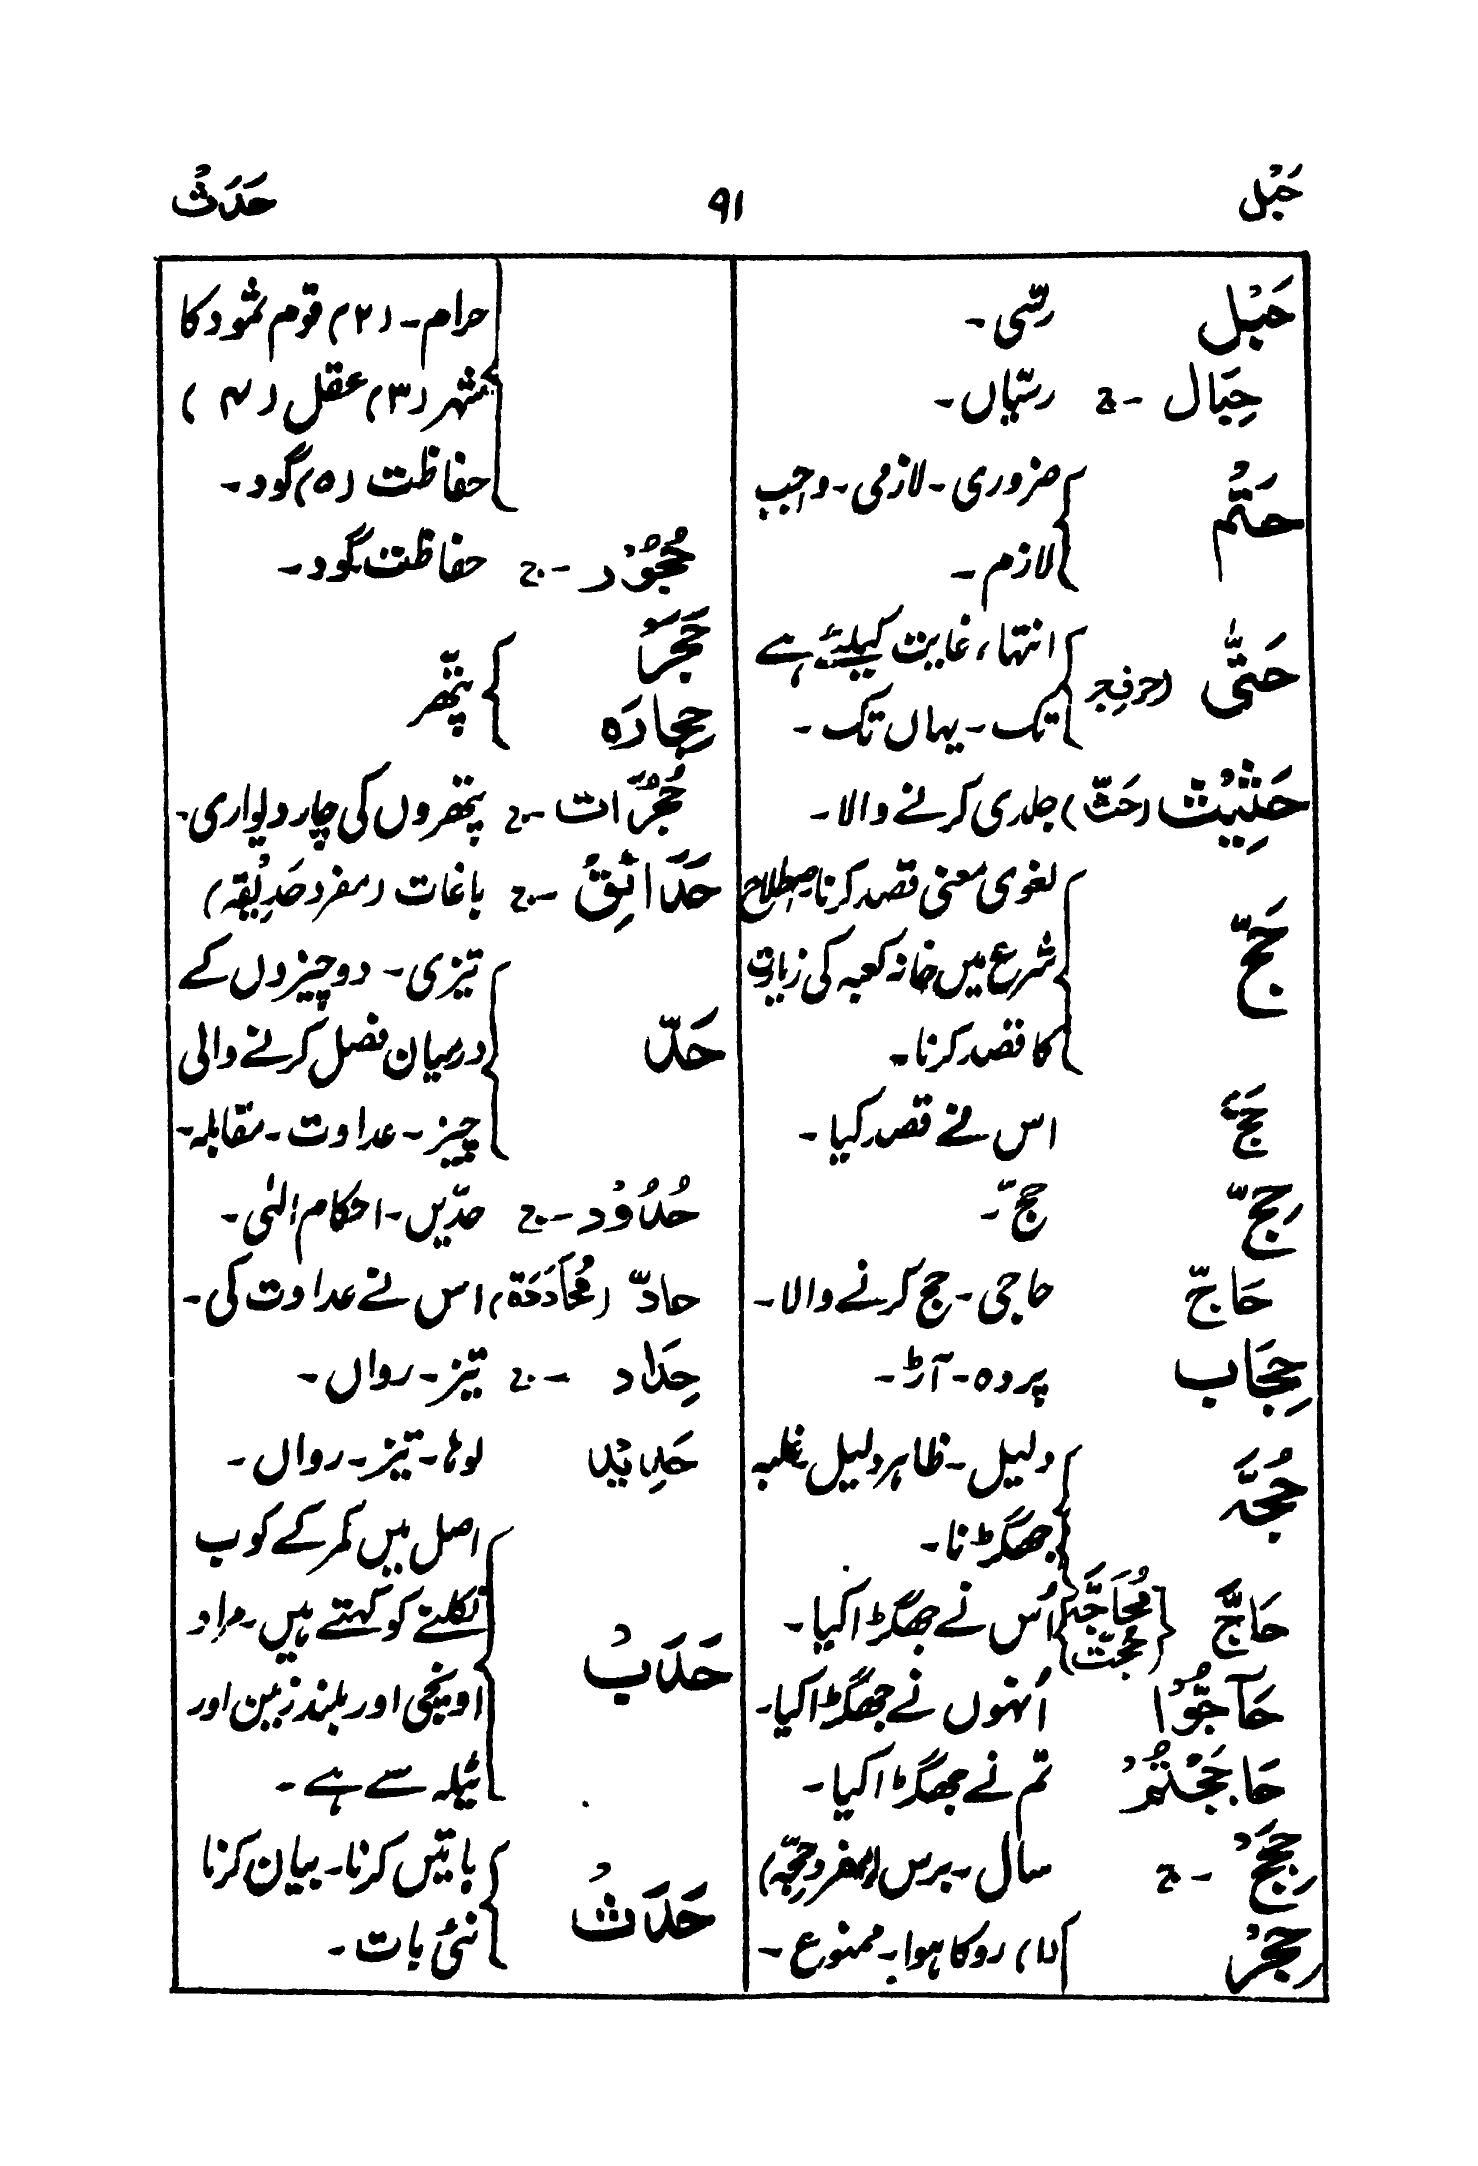 حَبْل ۹۱ حَدَثْ
حَبْل رسّی۔
حِبَال ۔ج رسّیاں۔
حَتْمٌ ضروری۔ لازمی۔ واجب
لازم۔
حَتّٰی (حرفِ جر) انتہا، غایت کیلئے ہے
تک۔ یہاں تک۔
حَثِیْث (حَثّ) جلدی کرنے والا۔
حَجّ لغوی معنی قصد کرنا۔ اصطلاح
شرع میں خانہ کعبہ کی زیارت
کا قصد کرنا۔
حَجَّ اس نے قصد کیا۔
حِجّ حجّ۔
حَاجّ حاجی۔ حج کرنے والا۔
حِجَاب پردہ۔ آڑ۔
حُجَّہ دلیل۔ ظاہر دلیل غلبہ
جھگڑنا۔
حَاجَّ {مُحَاجَّہ حُجّت} اُس نے جھگڑا کیا۔
حَآجُّوْا اُنہوں نے جھگڑا کیا۔
حَاجَجْتُمْ تم نے جھگڑا کیا۔
حِجَجْ ۔ج سال۔ برس (مفرد حِجّہ)
حِجْرْ (۱) روکا ہوا۔ ممنوع۔
حرام۔ (۲) قوم ثمود کا
شہر (۳) عقل (۴)
حفاظت (۵) گود۔
حُجُوْر ۔ج حفاظت گود۔
حَجَر
حِجَارَہ پتھر
حُجُرَات ۔ج پتھروں کی چار دیواری۔
حَدَائِقُ ۔ج باغات (مفرد حَدِیْقہ)
حَدّ تیزی۔ دو چیزوں کے
درمیان فصل کرنے والی
چیز۔ عداوت۔ مقابلہ۔
حُدُوْد ۔ج حدّیں۔ احکام الٰہی۔
حادّ (مُحَادَدَة) اس نے عداوت کی۔
حِدَاد ۔ج تیز۔ رواں۔
حَدِیْد لوہا۔ تیز۔ رواں۔
حَدَبْ اصل میں کمر کے کوب
نکلنے کو کہتے ہیں۔ مراد
اونچی اور بلند زمین اور
ٹیلہ سے ہے۔
حَدَثْ باتیں کرنا۔ بیان کرنا
نئی بات۔